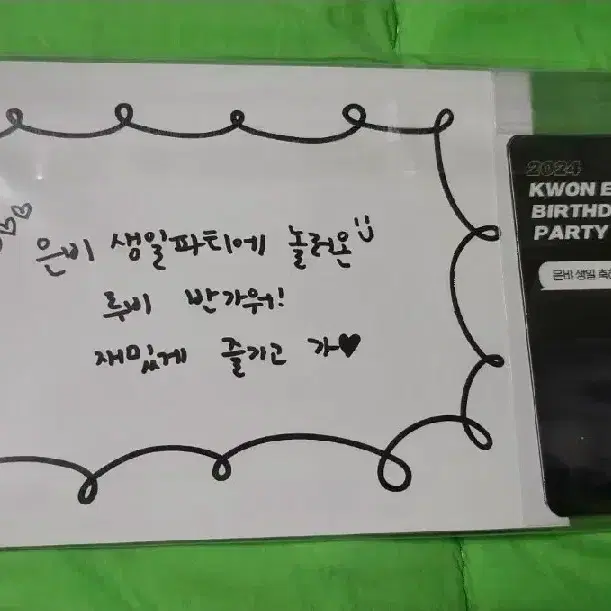 은비 생일파티에 놀러온
루비 반가워!
재밌게 즐기고 가♥
2024
KWON E
BIRTHD
PARTY
은비 생일 축하